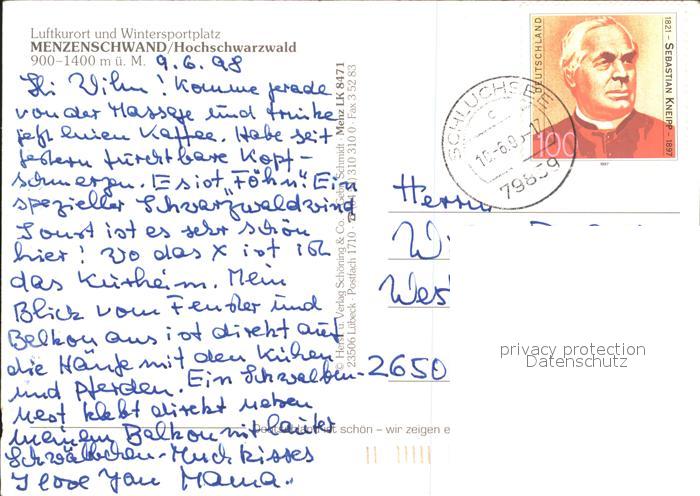 Luftkurort und Wintersportplatz
MENZENSCHWAND/Hochschwarzwald
900–1400 m ü. M. 9.6.98
Hi Wilm! Komme gerade
von der Massage und trinke
jetzt einen Kaffee. Habe seit
gestern furchtbare Kopf-
schmerzen. Es ist „Föhn". Ein
spezieller Schwarzwaldwind
Sonst ist es sehr schön
hier! Wo das X ist ist
das Kurheim. Mein
Blick vom Fenster und
Balkon aus ist direkt auf
die Hänge mit den Kühen
und Pferden. Ein Schwalben-
nest klebt direkt neben
meinem Balkon mit lauter
Schwälbchen. Much kisses
I love You Mama.
© Herst. u. Verlag Schöning & Co. Gebr. Schmidt · Menz LK 8471
23506 Lübeck · Postfach 1710 · 310 310 0 · Fax 3 52 83
Deutschland ist schön – wir zeigen e
DEUTSCHLAND
100
1821 – SEBASTIAN KNEIPP – 1897
1997
SCHLUCHSEE
c
10.-6.9 -17
79859
Herrn
W
Wes
2650
privacy protection
Datenschutz